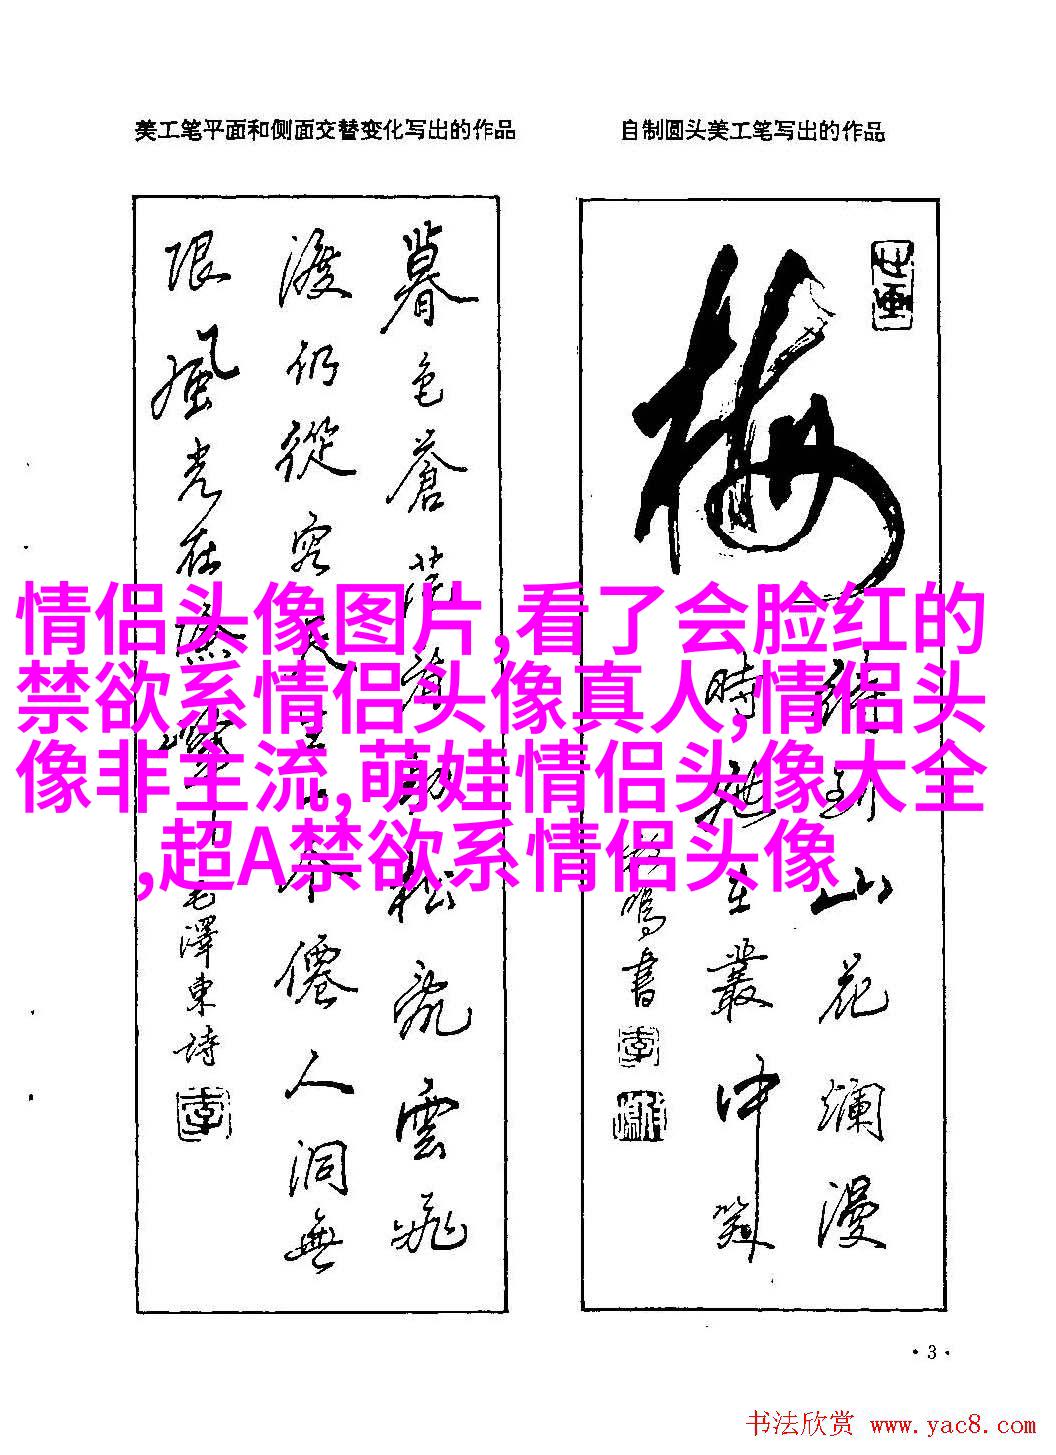 美工笔平面和侧面交替变化写出的作品
自制圆头美工笔写出的作品
暮色苍茫看劲松乱云飞
渡仍從容天生一个僊人洞無
限風光在險峰
毛澤東詩
梅
待到山花爛漫
時她在叢中笑
書
情侣头像图片,看了会脸红的
禁欲系情侣头像真人,情侣头
像非主流,萌娃情侣头像大全
,超A禁欲系情侣头像
·3·
书法欣赏 www.yac8.com